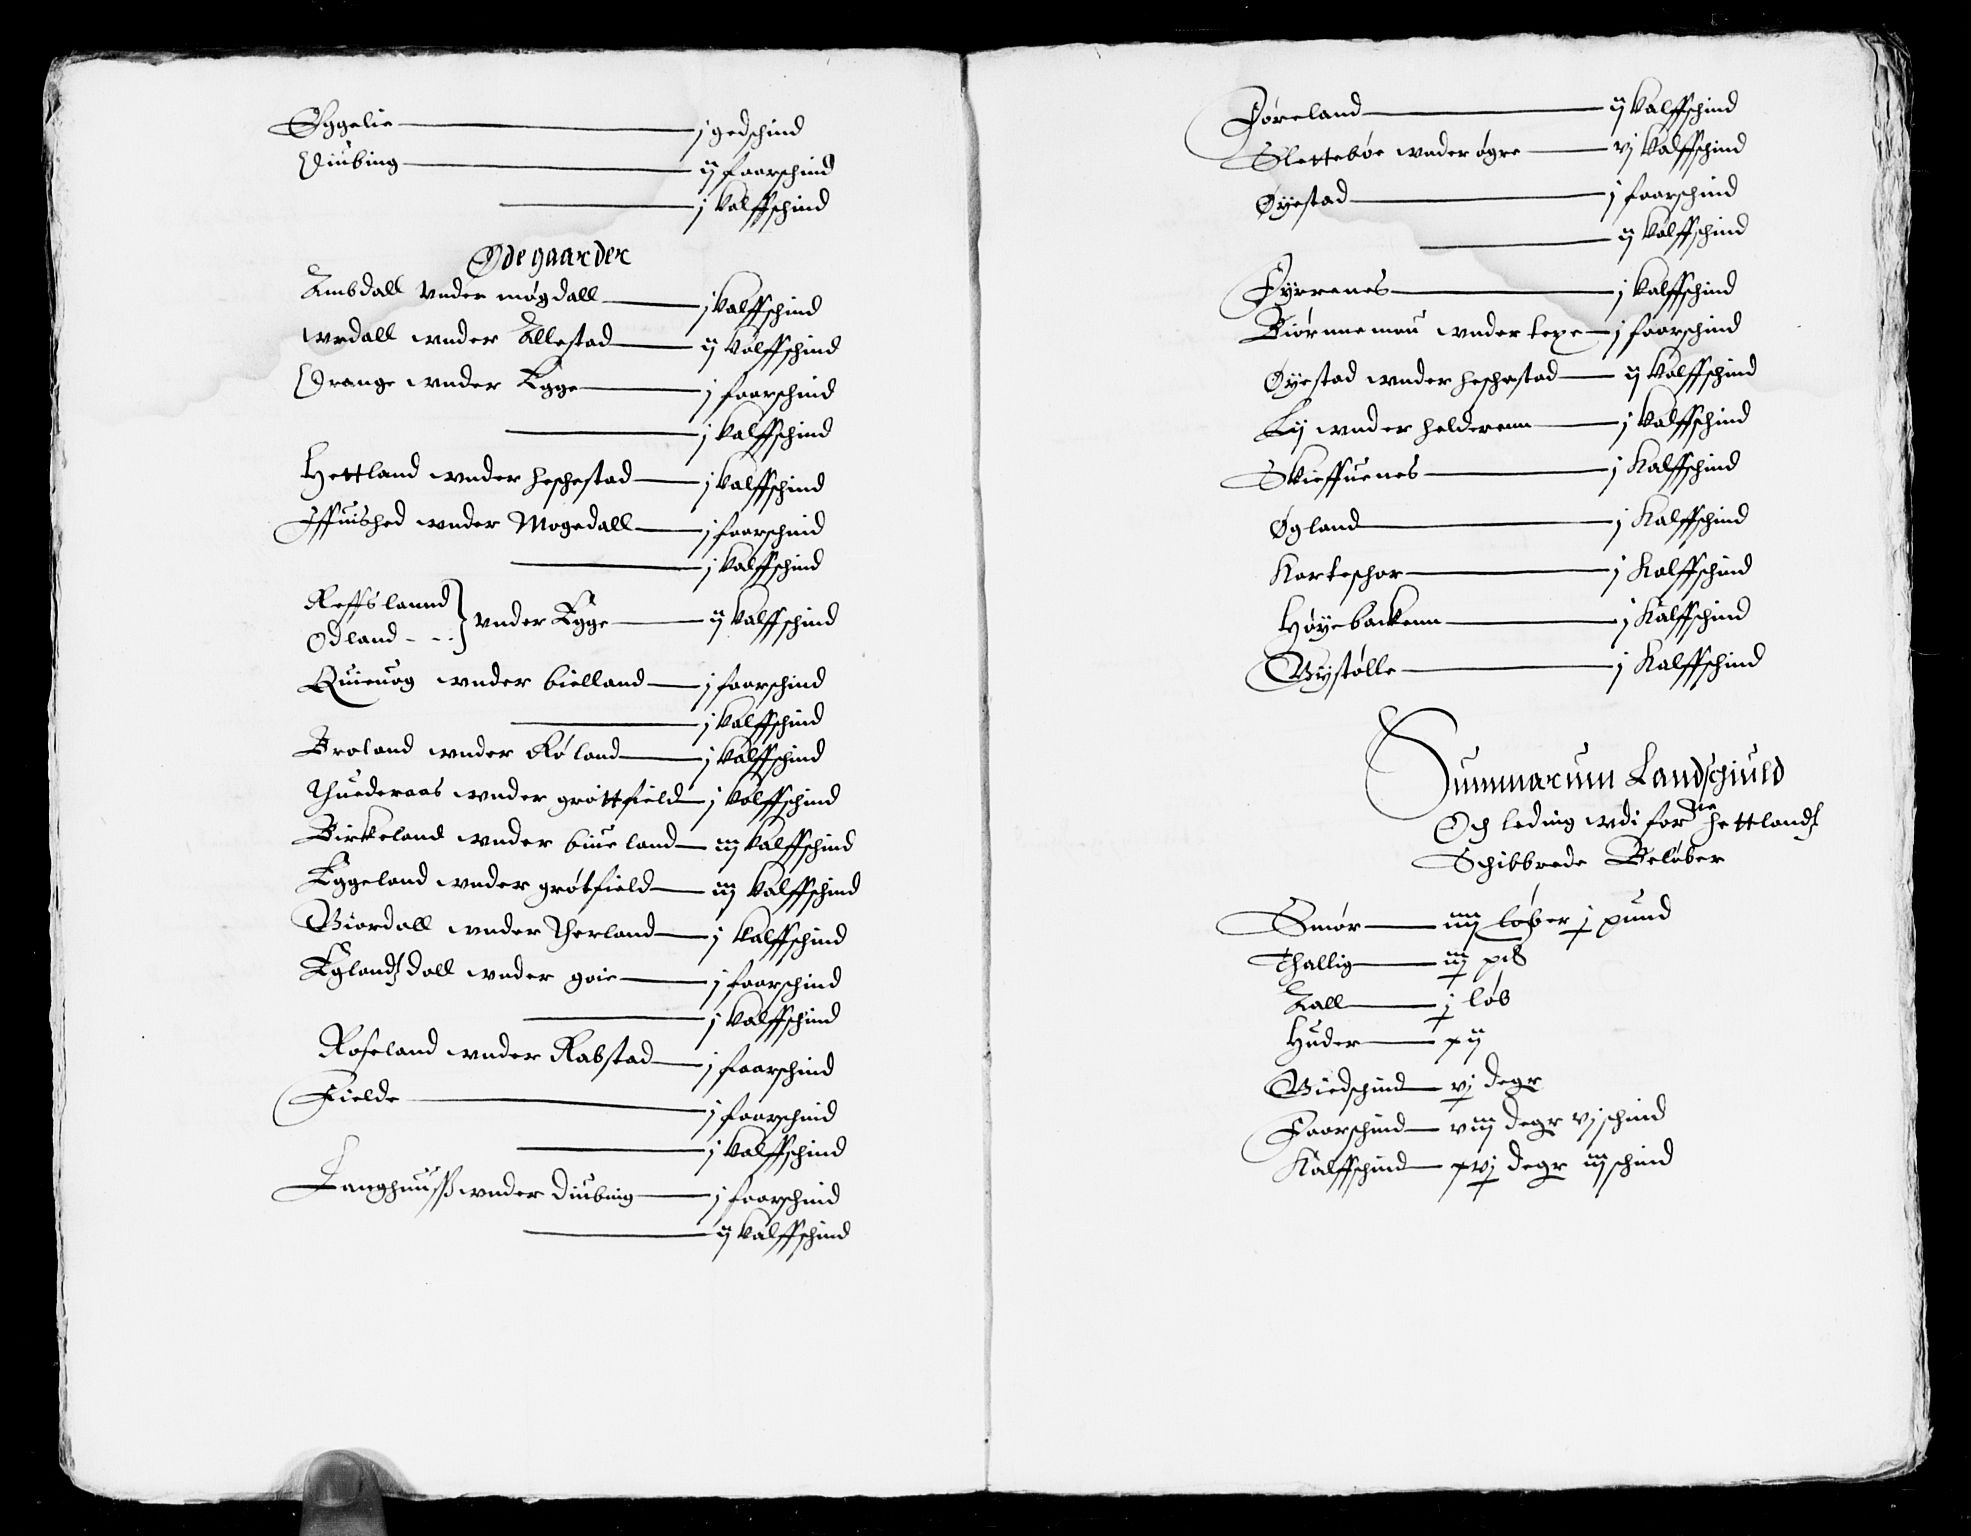 Eggelie — j gedschind
Diubing — ij faarschind
— j kalffschind
Ødegaarder
Ambdall vnder møgdall — j kalffschind
wrdall wnder Allestad — ij kalffschind
Drange wnder Egge — j faarschind
— j kalffschind
Hettland wnder heschestad — j kalffschind
Iffuished wnder Mogedall — j faarschind
— j kalffschind
Reffslannd
Odland - - - } vnder Egge — ij kalffschind
Quieuog wnder bielland — j faarschind
— j kalffschind
Broland wnder Røland — j kalffschind
Thuederaas wnder grøttfield — j kalffschind
Birkeland wnder biueland — iij kalffschind
Eggeland wnder grøtfield — iij kalffschind
Giordall wnder Therland — j kalffschind
Eglands dall wnder goie — j faarschind
— j kalffschind
Roseland wnder Rabstad — j faarschind
Fielde — j faarschind
— j kalffschind
Langhuuss wnder Diubing — j faarschind
— ij kalffschind
Jøreland — ij kalffschind
Slettebøe wnder øgre — vj kalffschind
Øyestad — j faarschind
— ij kalffschind
Fyrenes — j kalffschind
Biørnnemou wnder texe — j faarschind
Øyestad wnder heschestad — ij kalffschind
Lij wnder helderenn — j kalffschind
Skieffuenes — j Kalffschind
Øgland — j Kalffschind
Karteschor — j Kalffschind
Høyebackenn — j Kalffschind
Gystølle — j Kalffschind
Summarum Landschiuld
Och leding wdi forne hettlands
Schibbrede Beløber
Smør — iiij løber j pund
Thallig — iij pd
Aall — j løb
Huder — xij
Giedschind — vj degr
Faarschind — viij degr vj schind
Kalffschind — xvj degr iij schind